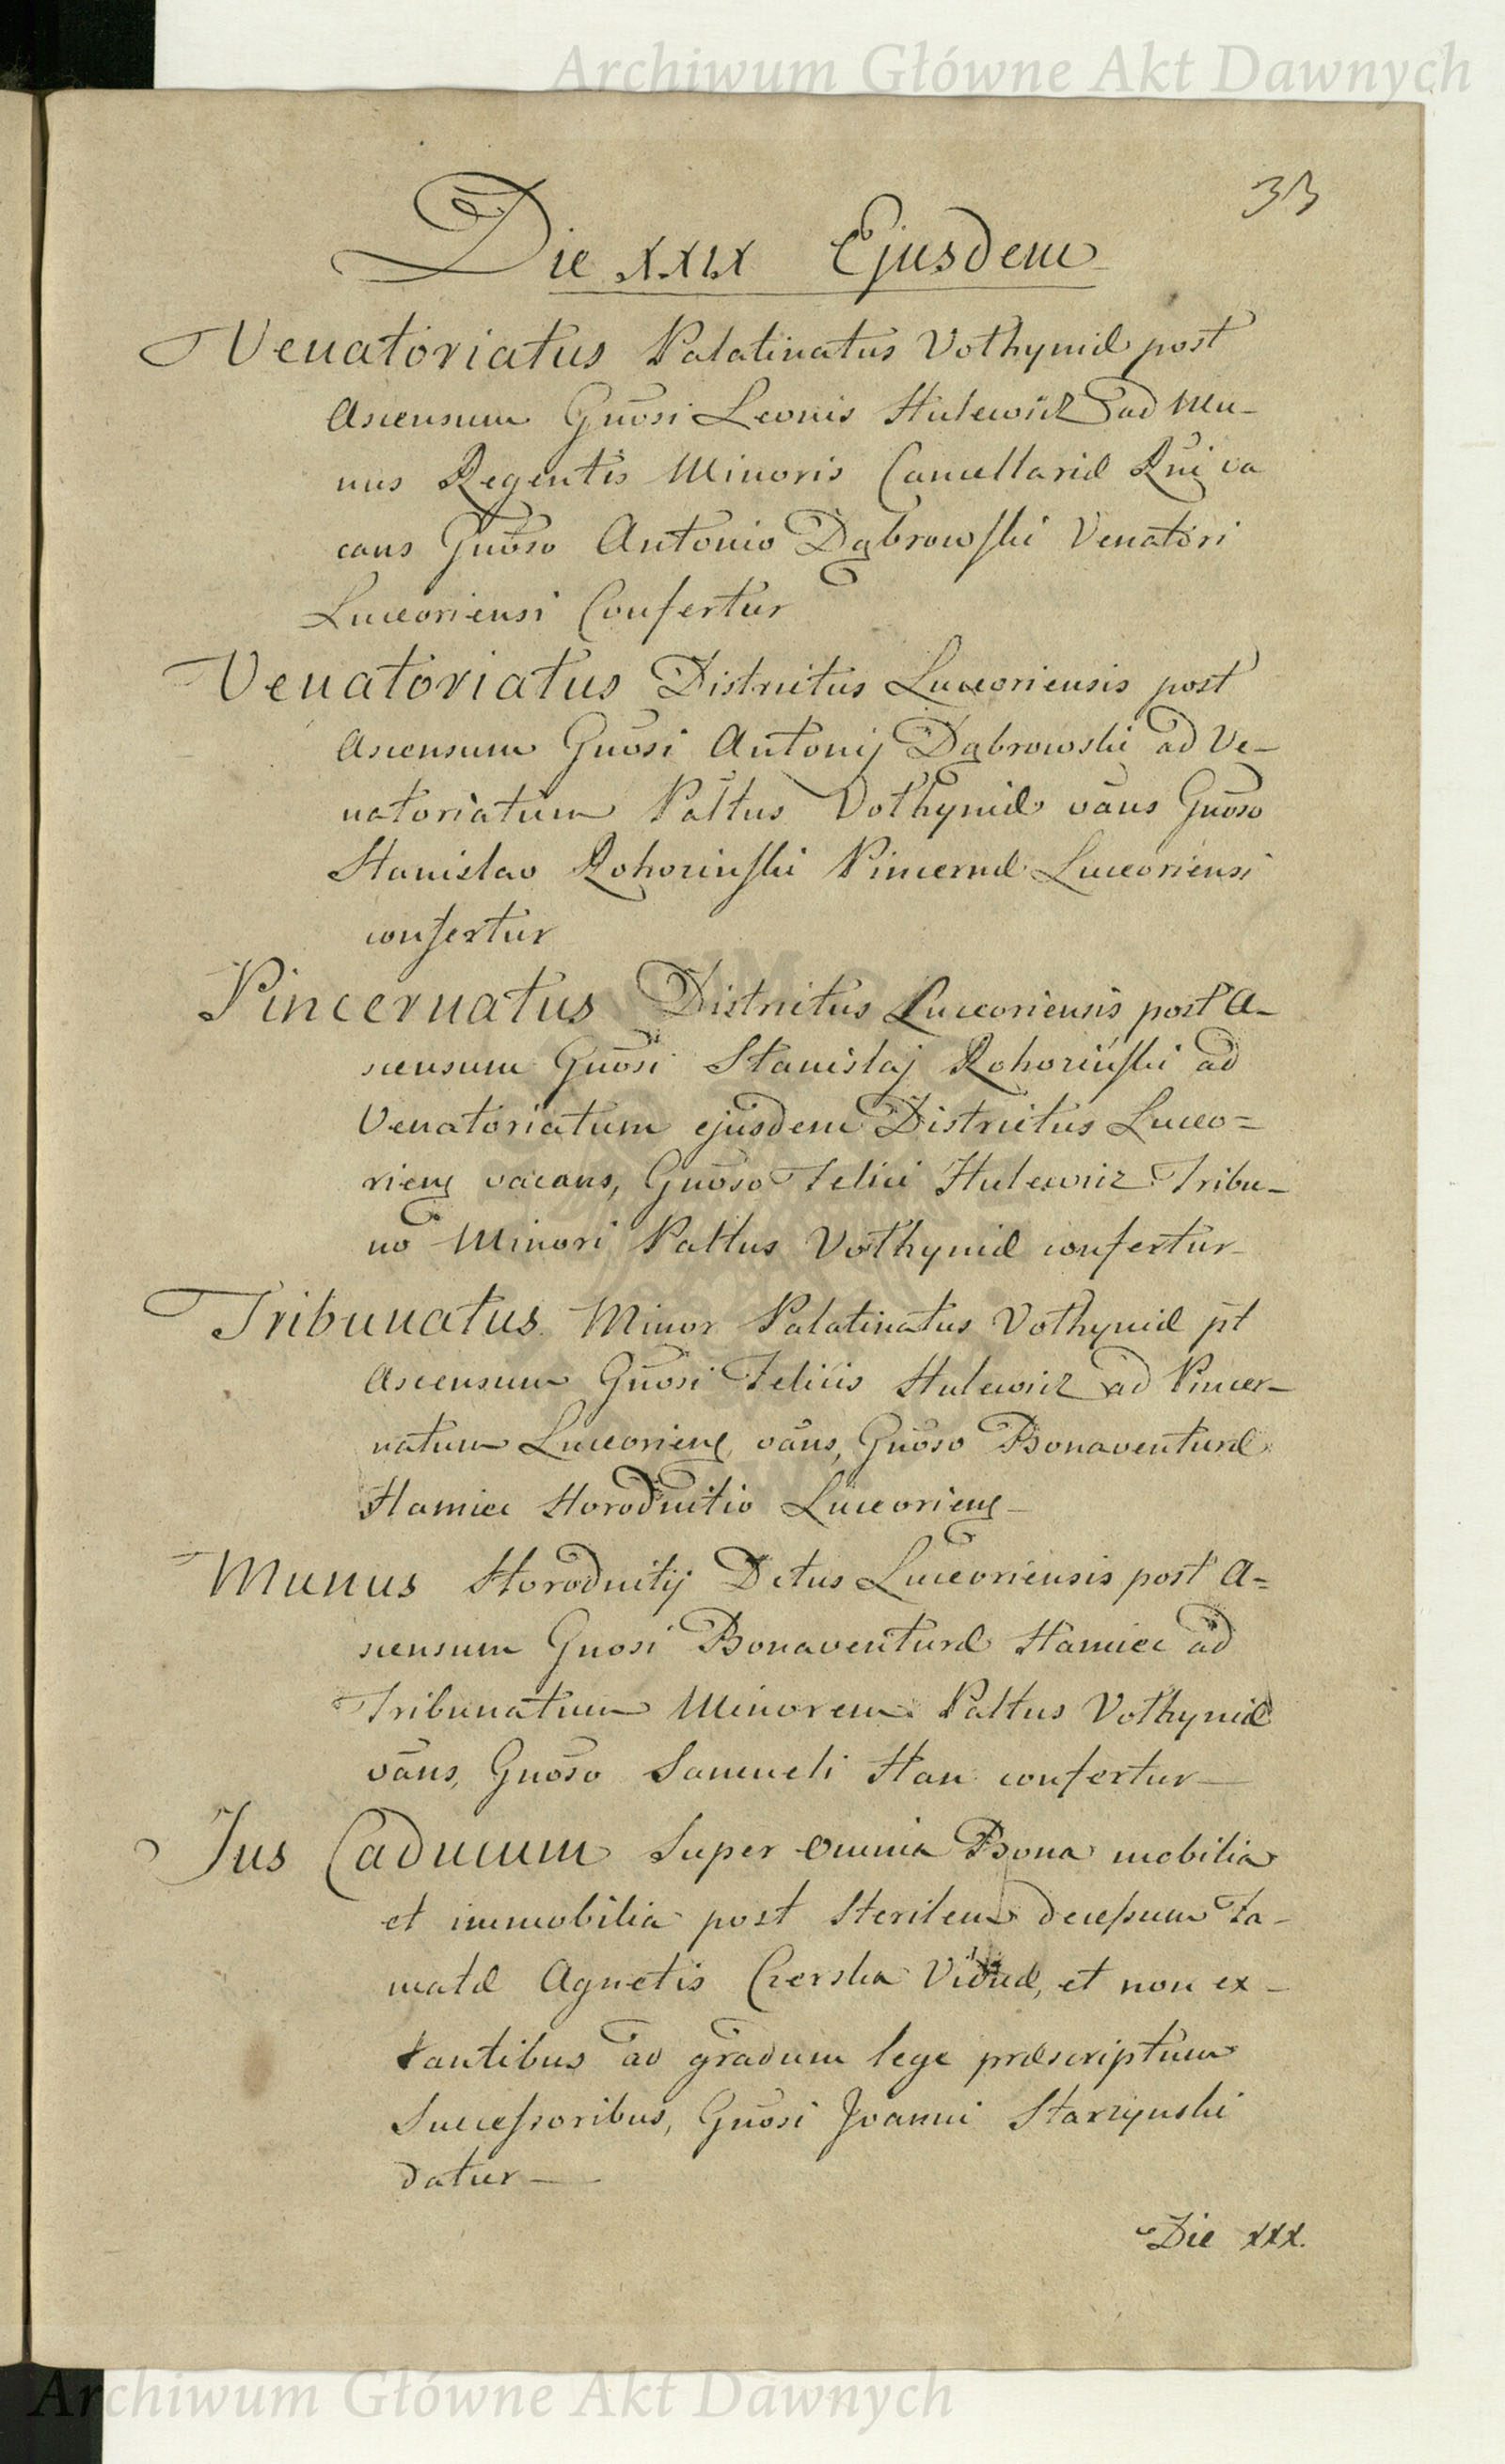 Archiwum Główne Akt Dawnych
33
Die XXIX Ejusdem
Venatoriatus Palatinatus Volhyniæ post
Ascensum Gnōsi Leonis Hulewicz ad Mu-
nus Regentis Minoris Cancellariæ Rni va
cans Gnōso Antonio Dąbrowski Venatori
Luceoriensi Confertur
Venatoriatus Districtus Luceoriensis post
Ascensum Gnōsi Antonij Dąbrowski ad Ve-
natoriatum Paltus Volhyniæ vāns Gnōso
Stanislao Rohozinski Pincernæ Luceoriensi
confertur
Pincernatus Districtus Luceoriensis post A-
scensum Gnōsi Stanislaj Rohozinski ad
Venatoriatum ejusdem Districtus Luceo=
rieng vacans, Gnōso Felici Hulewicz Tribu-
no Minori Paltus Volhyniæ confertur
Tribunatus Minor Palatinatus Volhyniæ pt
Ascensum Gnōsi Felicis Hulewicz ad Pincer-
natum Luceorieng vāns, Gnōso Bonaventuræ
Hamiec Horodnitio Luceorieng
Munus Horodnitij Dctus Luceoriensis post A=
scensum Gnosi Bonaventuræ Hamiec ad
Tribunatum Minorem Paltus Volhyniæ
vāns, Gnōso Samueli Han confertur
Jus Caducum Super Omnia Bona mobilia
et immobilia post Sterilem decessum Fa-
matæ Agnetis Czerska Viduæ, et non ex-
tantibus ad gradum lege præscriptum
Successoribus, Gnōsi Joanni Starzynski
datur
Die XXX.
Archiwum Główne Akt Dawnych